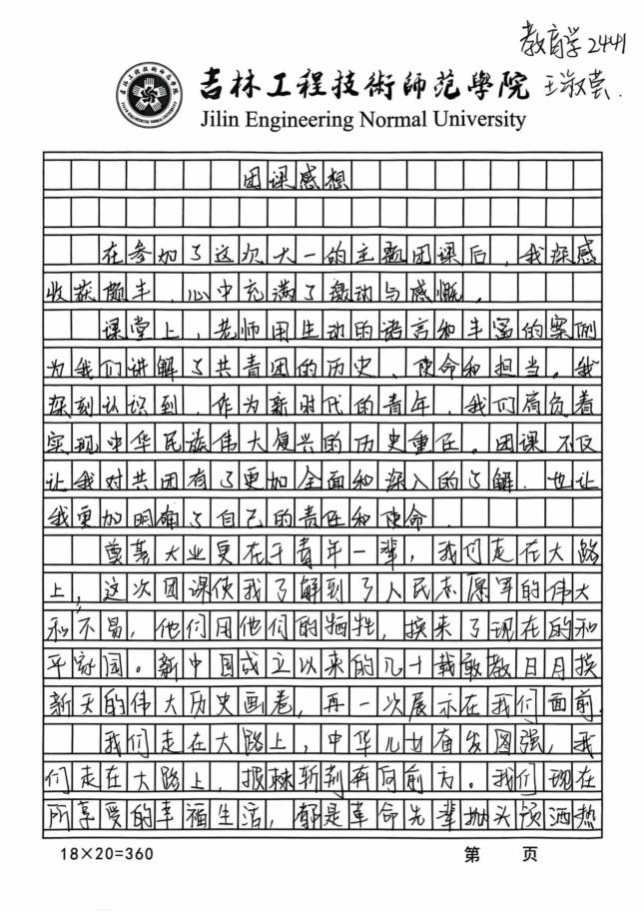 教育学2441
吉林工程技術師范學院 王淑芸.
Jilin Engineering Normal University
团课感想
在参加了这次大一的主题团课后,我深感
收获颇丰,心中充满了激动与感慨。
课堂上,老师用生动的语言和丰富的案例
为我们讲解了共青团的历史、使命和担当。我
深刻认识到,作为新时代的青年,我们肩负着
实现中华民族伟大复兴的历史重任。团课不仅
让我对共团有了更加全面和深入的了解,也让
我更加明确了自己的责任和使命.
奠基大业更在于青年一辈,我们走在大路
上,这次团课使我了解到了人民志愿军的伟大
和不易,他们用他们的牺牲,换来了现在的和
平家园。新中国成立以来的几十载敢教日月换
新天的伟大历史画卷,再一次展示在我们面前.
我们走在大路上,中华儿女奋发图强,我
们走在大路上,披棘斩荆奔向前方。我们现在
所享受的幸福生活,都是革命先辈抛头颅洒热
18×20=360 第 页